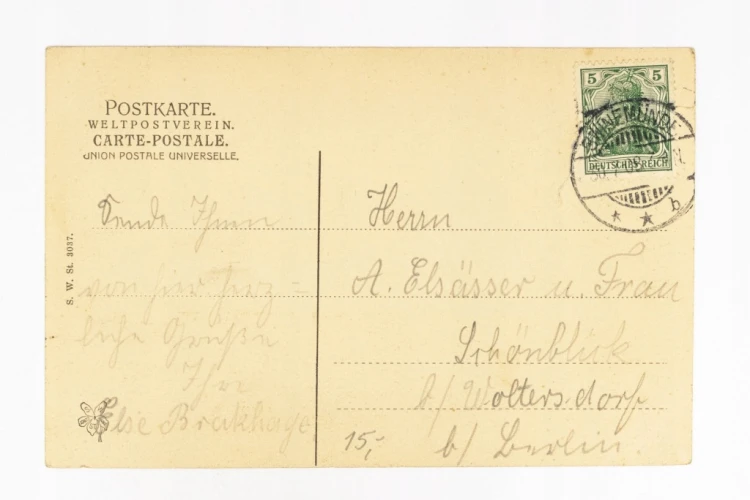 POSTKARTE.
WELTPOSTVEREIN.
CARTE-POSTALE.
UNION POSTALE UNIVERSELLE.
5 5
DEUTSCHES REICH
SWINEMÜNDE
b
S. W. St. 3037.
Sende Ihnen
von hier herz=
liche Grüße
Ihre
Else Brakhage
Herrn
A. Elsässer u. Frau
Schönblick
b/ Woltersdorf
b/ Berlin.
15,-